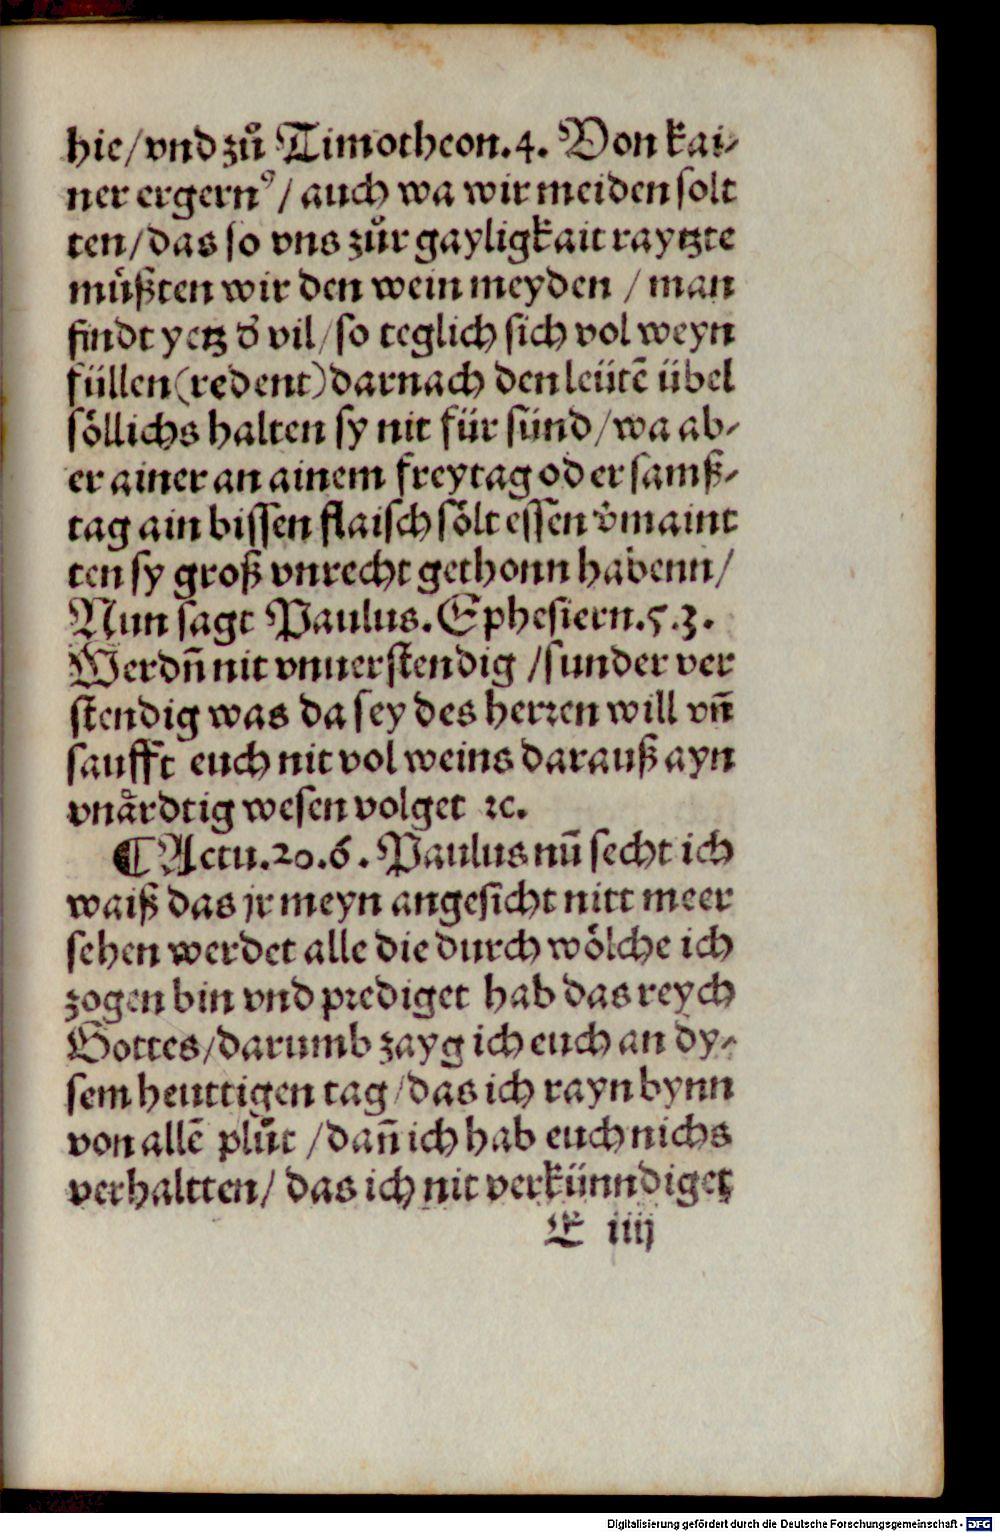 hie/vnd zů Timotheon.4. Von kai-
ner ergernꝰ/auch wa wir meiden solt
ten/das so vns zůr gayligkait raytzte
můßten wir den wein meyden / man
findt yetz d̕ vil/so teglich sich vol weyn
füllen(redent)darnach den leütē übel
söllichs halten sy nit für sünd/wa ab-
er ainer an ainem freytag oder samß-
tag ain bissen flaisch sölt essen v̕maint
ten sy groß vnrecht gethonn habenn/
Nun sagt Paulus. Ephesiern.5.3.
Werdn̄ nit vnuerstendig /sunder ver
stendig was da sey des herꝛen will vn̄
saufft euch nit vol weins darauß ayn
vnårdtig wesen volget ⁊c.
¶Actu.20.6. Paulus nū secht ich
waiß das jr meyn angesicht nitt meer
sehen werdet alle die durch wölche ich
zogen bin vnd prediget hab das reych
Gottes/darumb zayg ich euch an dy-
sem heuttigen tag/das ich rayn bynn
von allē plůt /dan̄ ich hab euch nichs
verhaltten/ das ich nit verkünndiget
E iiij
Digitalisierung gefördert durch die Deutsche Forschungsgemeinschaft - DFG